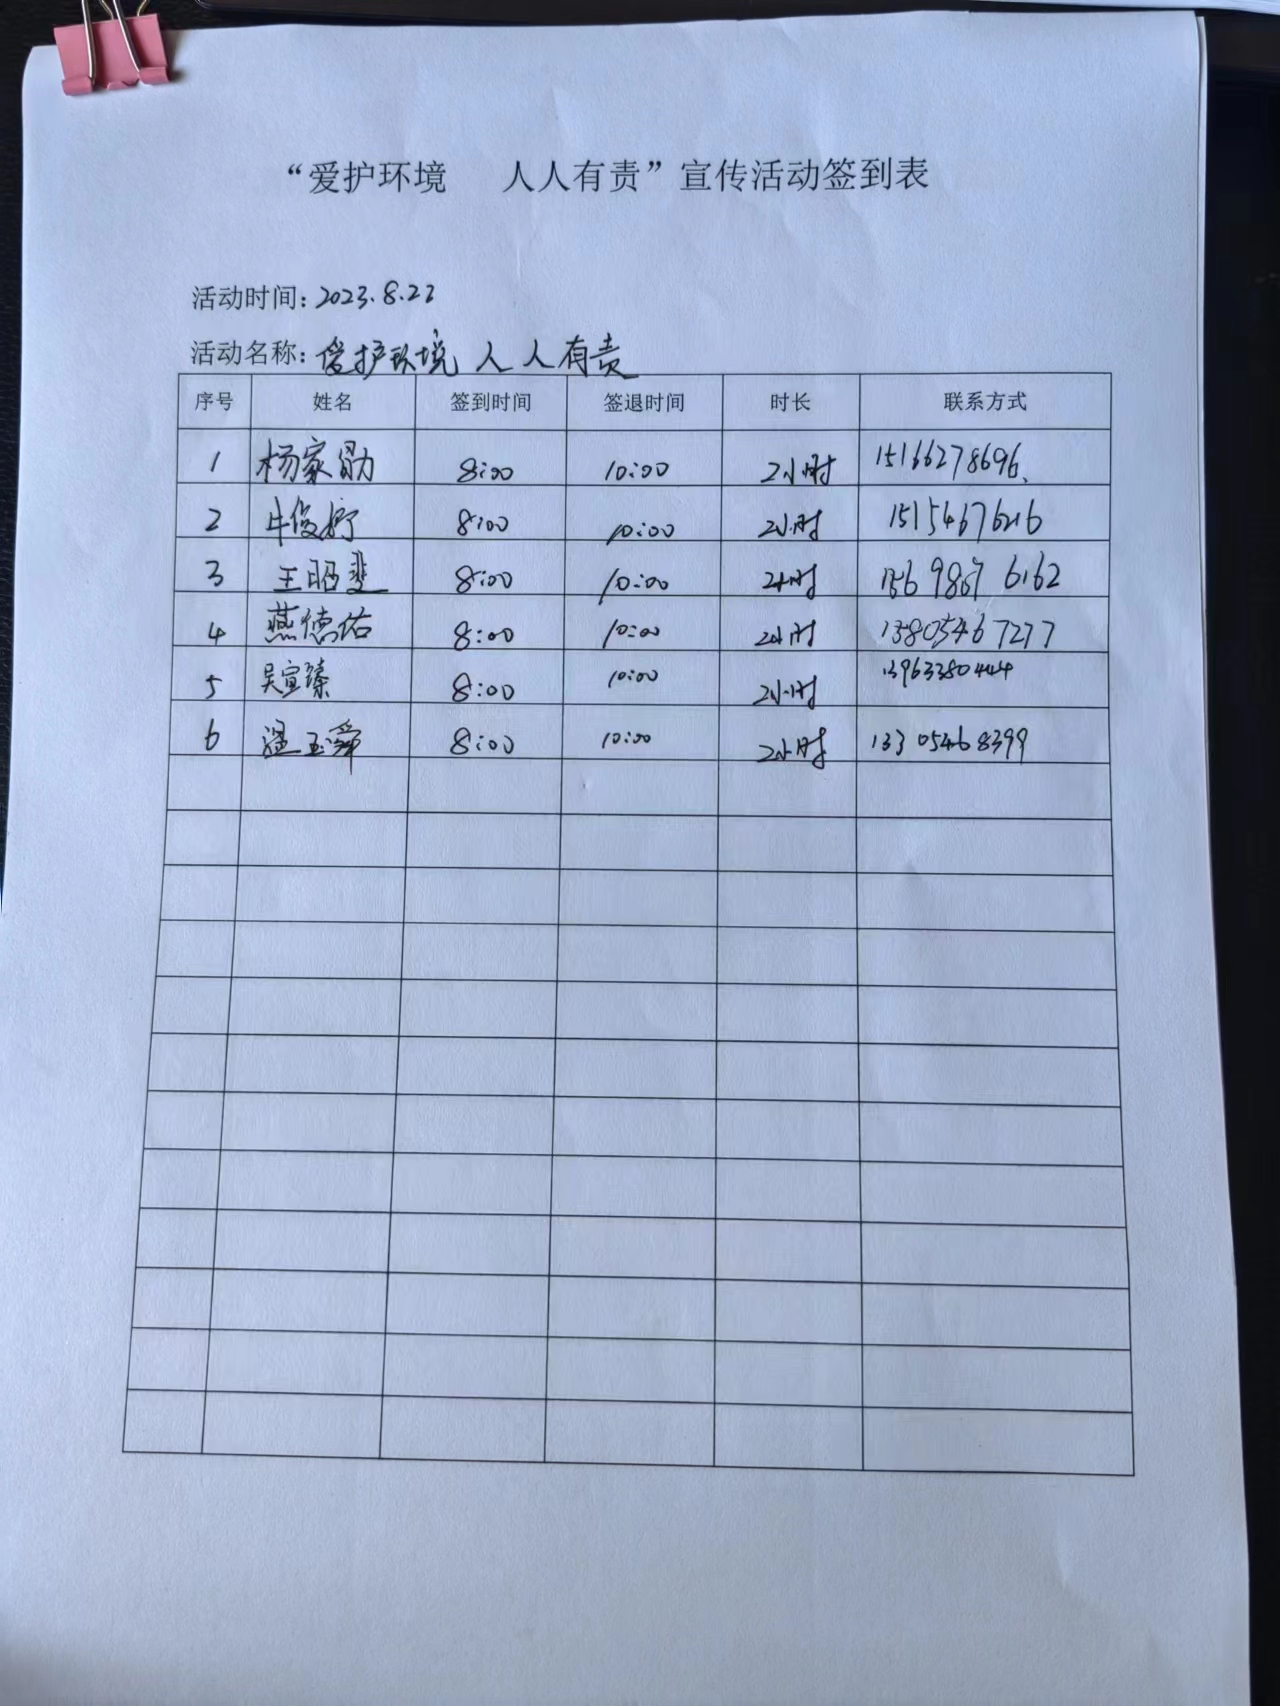 “爱护环境 人人有责”宣传活动签到表
活动时间：2023.8.23
活动名称：爱护环境 人人有责
序号 姓名 签到时间 签退时间 时长 联系方式
1 杨家勋 8:00 10:00 2小时 15166278696.
2 牛俊 8:00 10:00 2小时 15154676216
3 王昭斐 8:00 10:00 2小时 15698676162
4 燕德佑 8:00 10:00 2小时 13805467277
5 吴宣臻 8:00 10:00 2小时 13963380444
6 温玉舜 8:00 10:00 2小时 13305468399